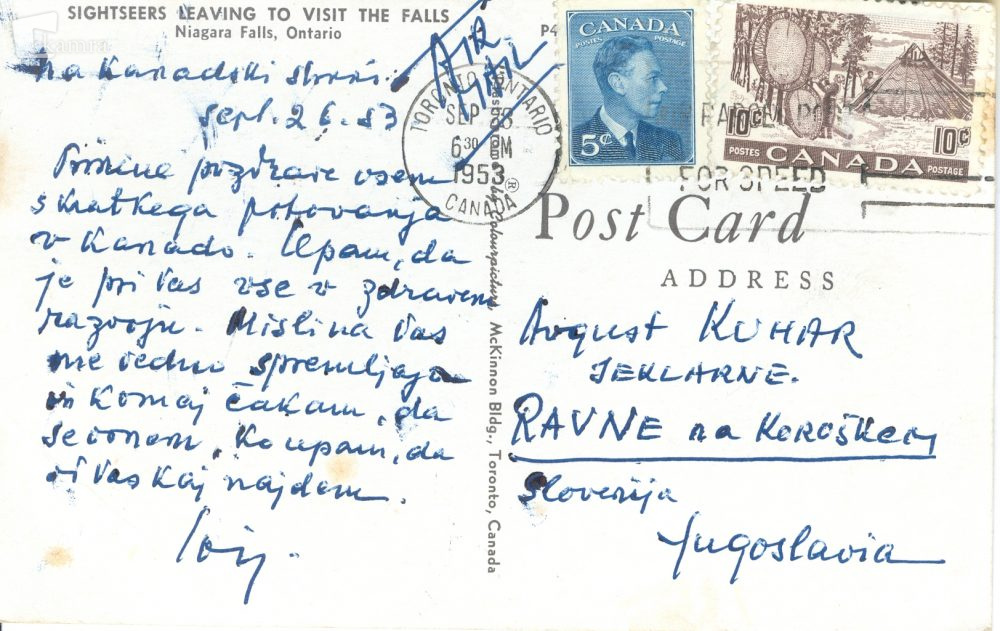 SIGHTSEERS LEAVING TO VISIT THE FALLS
Niagara Falls, Ontario
P4
AIR
MAIL
na Kanadski strani
sept. 26. 53
Prisrčne pozdrave vsem
s kratkega potovanja
v Kanado. Upam, da
je pri vas vse v zdravem
razvoju. Misli na vas
me vedno spremljajo
in komaj čakam, da
se vrnem, ko upam, da
vas kaj najdem.
TORONTO ONTARIO
SEP
6 30 PM
1953
CANADA
CANADA
POSTES POSTAGE
5¢
10¢
10¢
POSTES CANADA POSTAGE
FOR SPEED
Post Card
ADDRESS
Colourpicture, McKinnon Bldg., Toronto, Canada
Avgust KUHAR
JEKLARNE.
RAVNE na KOROŠKEM
Slovenija
Jugoslavia